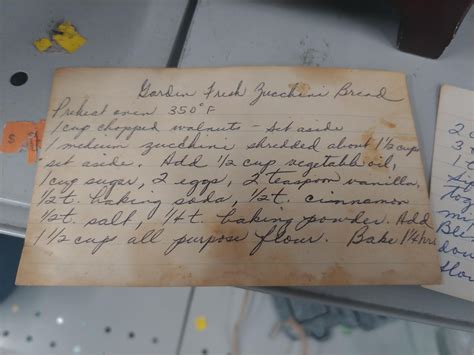 Garden Fresh Zucchini Bread
Preheat oven 350°F
1 cup chopped walnuts - set aside
1 medium zucchini shredded about 1 1/2 cup
set aside. Add 1/2 cup vegetable oil,
1 cup sugar, 2 eggs, 2 teaspoon vanilla,
1/2 t. baking soda, 1/2 t. cinnamon
1/2 t. salt, 1/4 t. baking powder. Add
1 1/2 cups all purpose flour. Bake 1 1/4 hrs
$
2
3
1